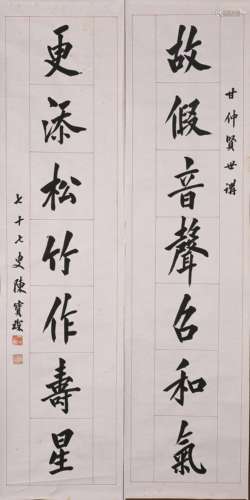 甘仲賢世講
故假音聲召和氣
更添松竹作壽星
七十七叟陳寶琛